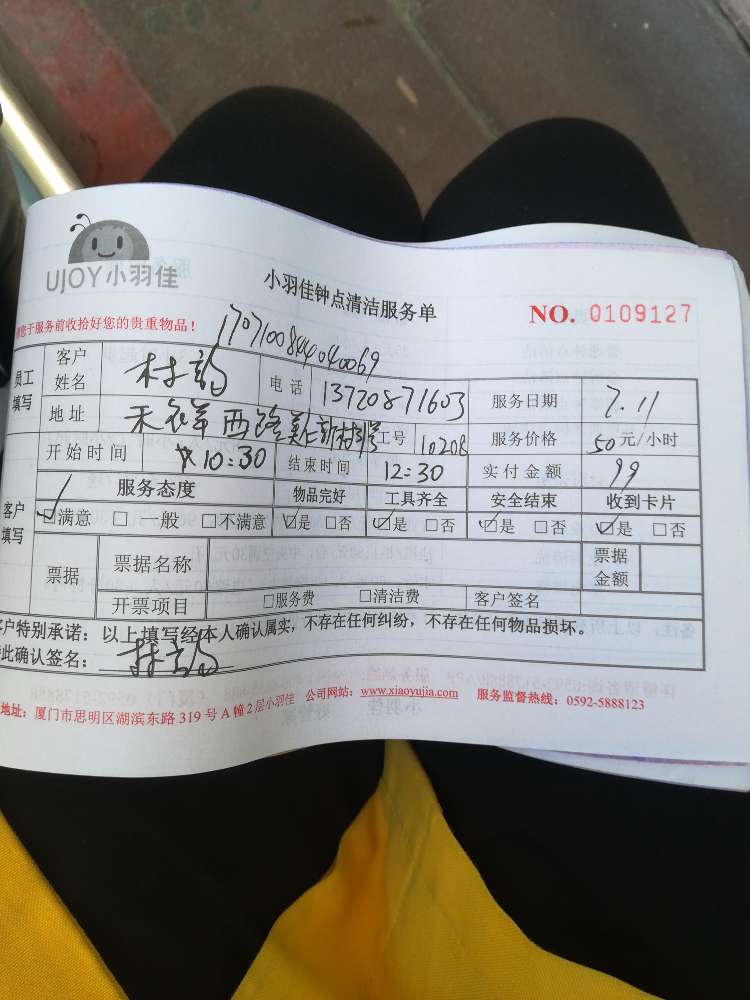 UJOY小羽佳
小羽佳钟点清洁服务单
NO. 0109127
您于服务前收拾好您的贵重物品!
员工填写 客户姓名 林 电话 13720871603 服务日期 7.11
地址 西路 工号 10208 服务价格 50元/小时
开始时间 10:30 结束时间 12:30 实付金额 99
客户填写 服务态度 物品完好 工具齐全 安全结束 收到卡片
☑满意 □一般 □不满意 ☑是 □否 ☑是 □否 ☑是 □否 ☑是 □否
票据 票据名称 票据金额
开票项目 □服务费 □清洁费 客户签名
客户特别承诺:以上填写经本人确认属实,不存在任何纠纷,不存在任何物品损坏。
特此确认签名:林
地址:厦门市思明区湖滨东路319号A幢2层小羽佳 公司网站:www.xiaoyujia.com 服务监督热线:0592-5888123